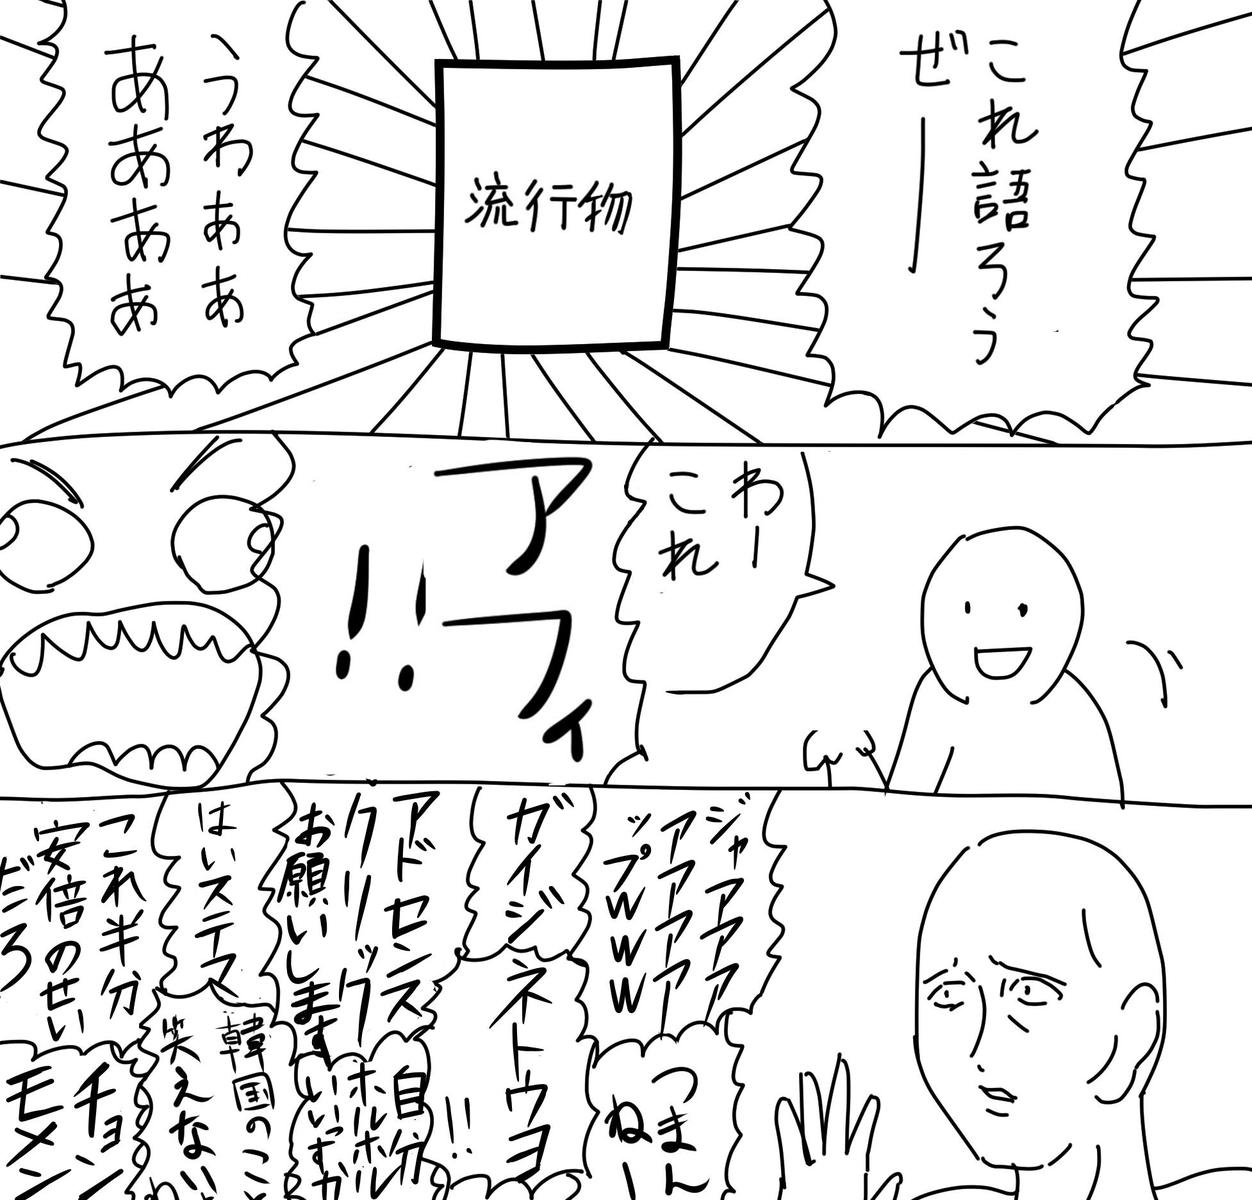 これ語ろう
ぜー
流行物
うわぁぁぁ
ああああ
わー
これ
アフィ
!!
ジャアアア
アアアアア
ップwww
つまん
ねー
ガイジ
ネトウヨ
!!
アドセンス
クリック
お願いします
自分
ホルホル
いいっすか
はいステマ
韓国のこと
笑えない
これ半分
安倍のせい
だろ
チョン
モメン